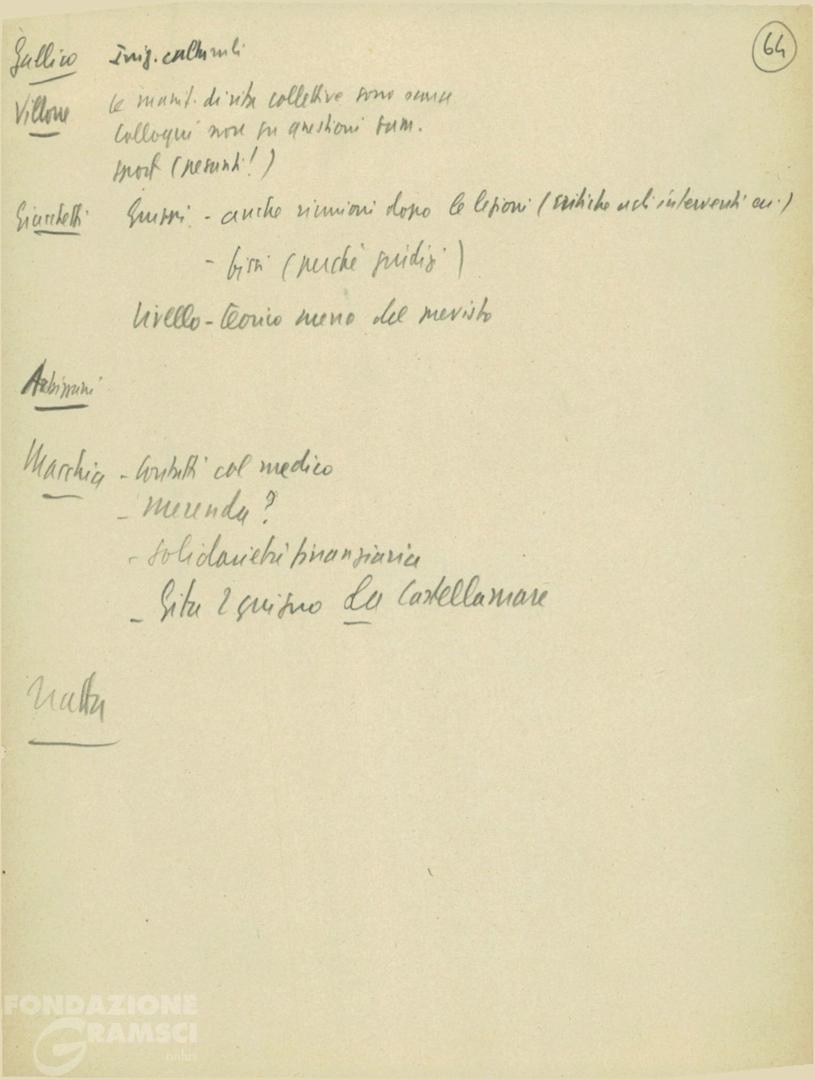 64
Gallico Iniz. culturali
Villone le manif. di vita collettiva sono
Colloqui non su questioni
sport (pesanti!)
Giachetti Gruppi - anche riunioni dopo le lezioni (critiche agli interventi
- (perché giudizi)
livello - teorico meno del previsto
Macchia - Contatti col medico
- merenda?
- solidarietà finanziaria
- Gita 2 giugno Da Castellamare
Natta
FONDAZIONE
GRAMSCI
onlus